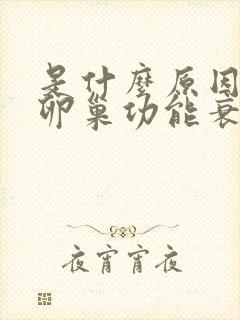 是什麼原因
卵巢功能衰
夜宵宵夜